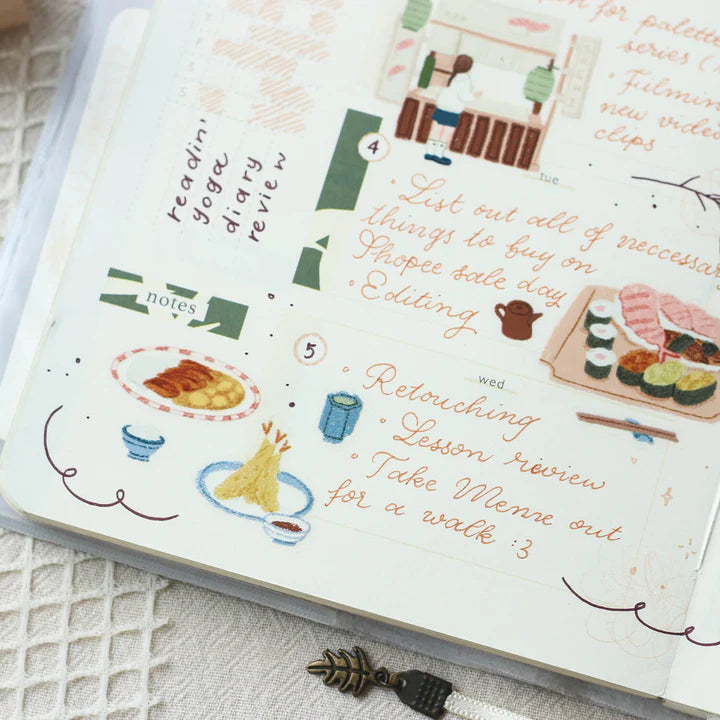 T
F
S
S
readin'
yoga
diary
review
notes
for palette
series
• Filming
new video
clips
4
tue
• List out all of neccessary
things to buy on
Shopee sale day
• Editing
5
wed
• Retouching
• Lesson review
• Take Meme out
for a walk :3